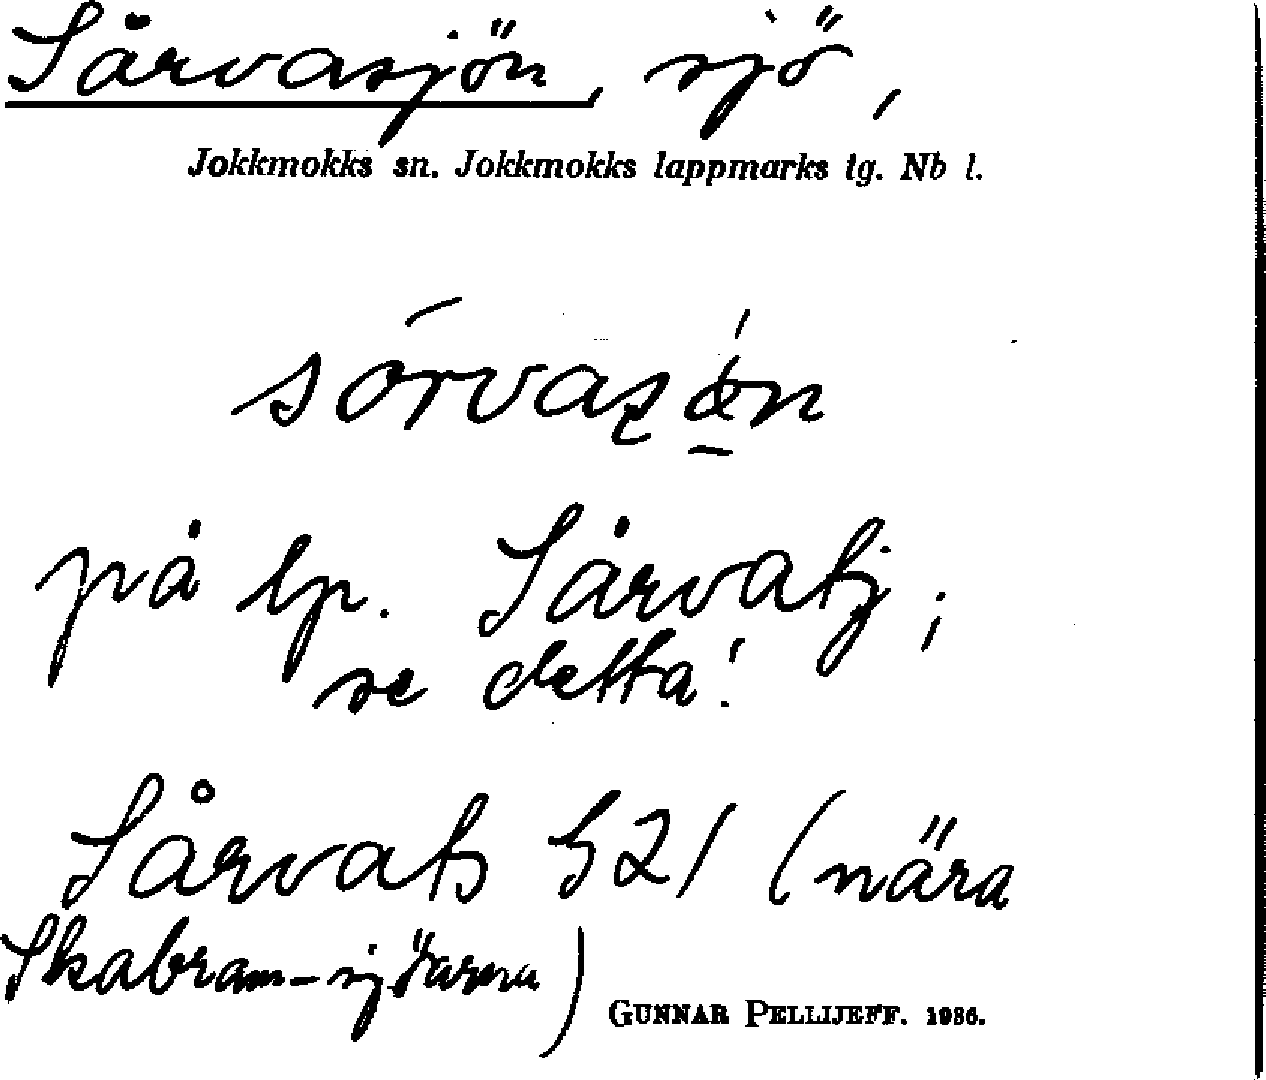 Sårvasjön, sjö,
Jokkmokks sn. Jokkmokks lappmarks tg. Nb l.
på lp. Sårvatj;
se detta!
Sårvats 521 (nära
Skabram-sjöarna)
GUNNAR PELLIJEFF. 1936.